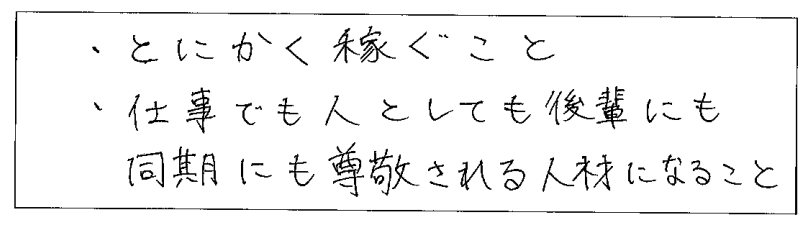 ・とにかく稼ぐこと
・仕事でも人としても後輩にも
同期にも尊敬される人材になること